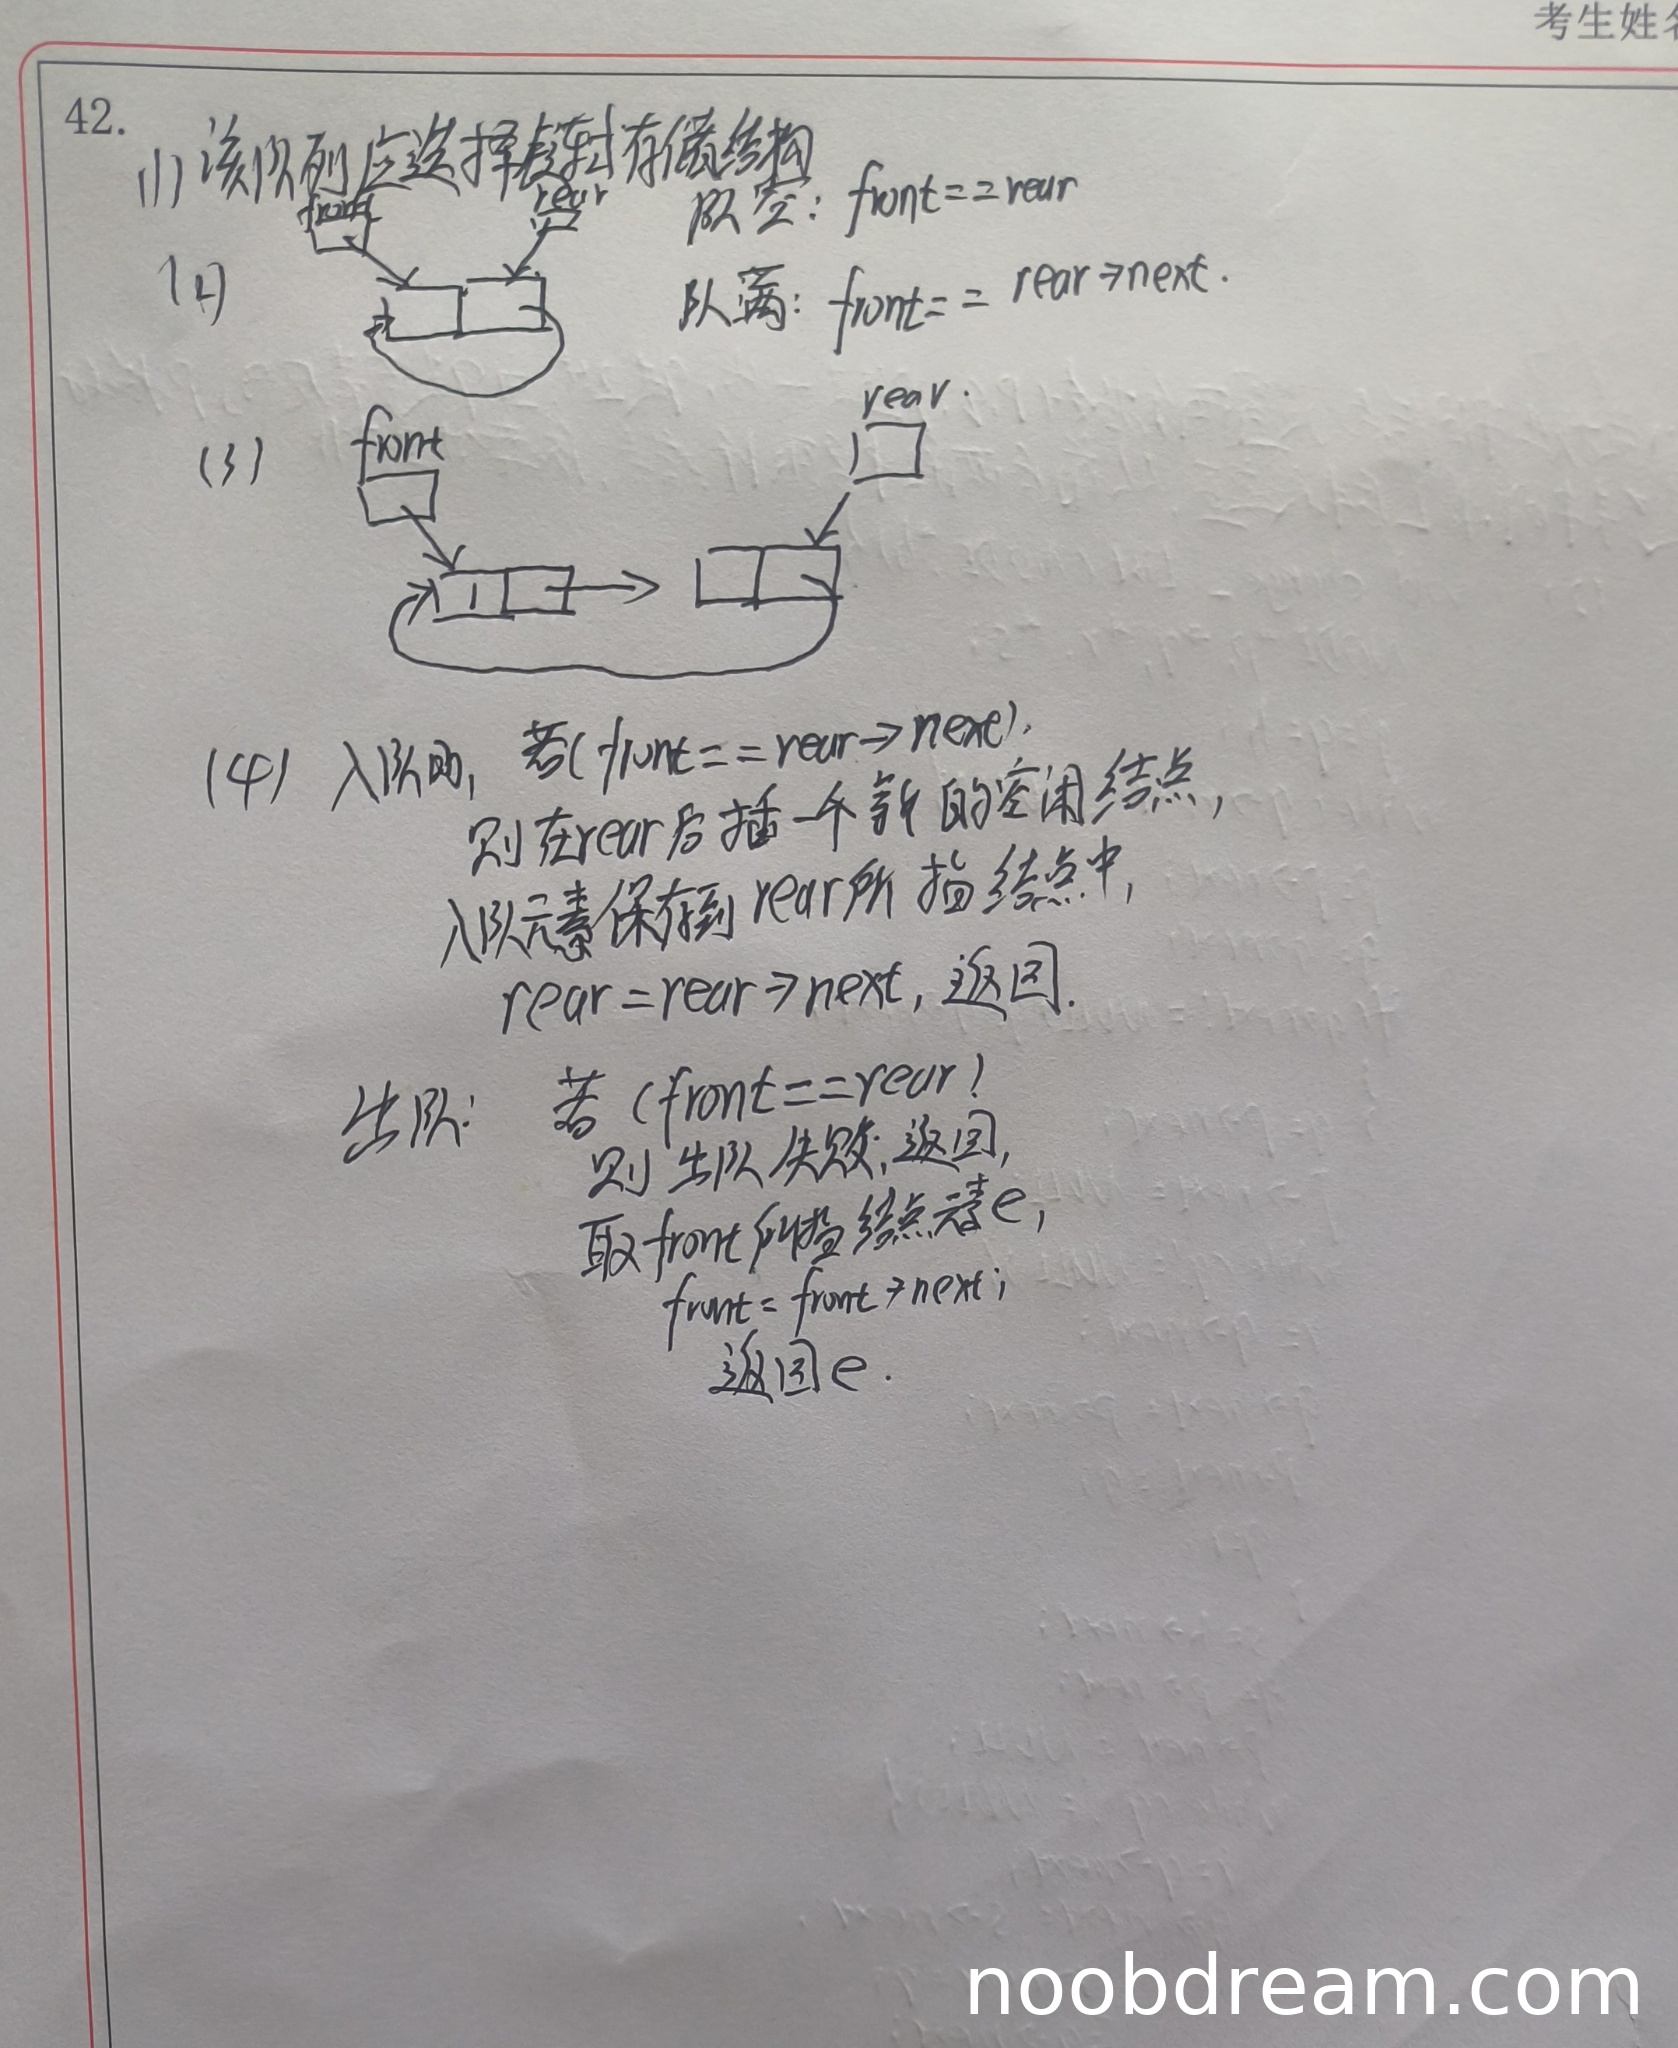 考生姓名
42.
(1) 该队列应选择链式存储结构
front
rear
队空: front==rear
(2)
队满: front== rear→next.
(3)
front
rear.
(4) 入队时, 若(front==rear→next).
则在rear后插一个新的空闲结点,
入队元素保存到rear所指结点中,
rear=rear→next, 返回.
出队: 若 (front==rear)
则 出队失败, 返回,
取front所指结点元素e,
front= front→next;
返回e.
noobdream.com